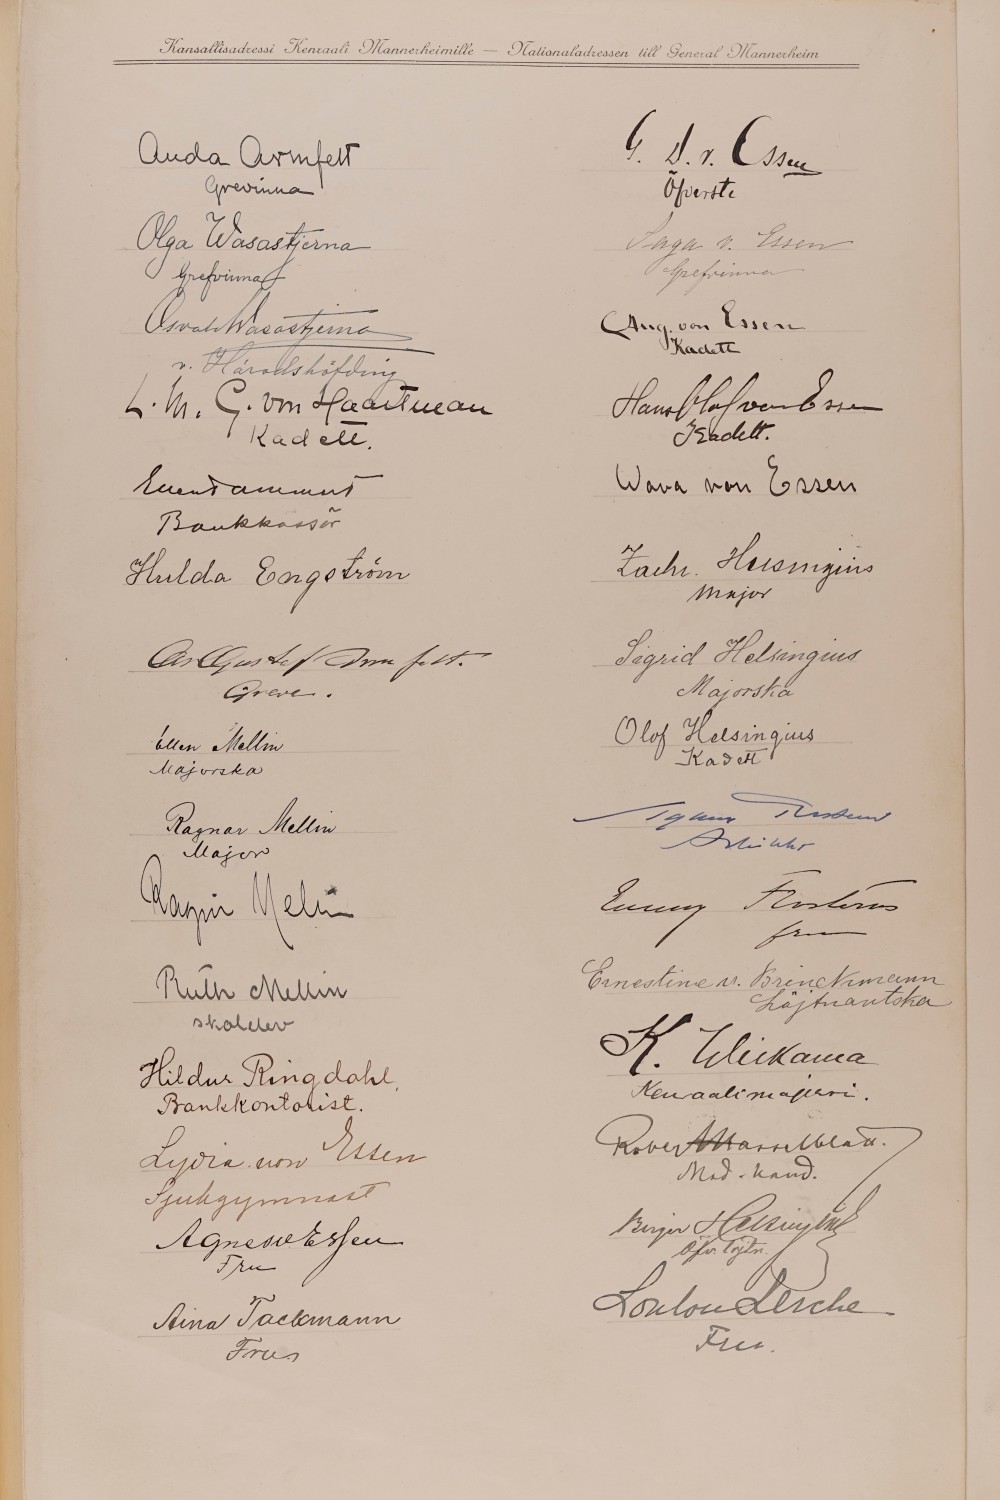 Kansallisadressi Kenraali Mannerheimille — Nationaladressen till General Mannerheim
Anda Armfelt
Grevinna
Olga Wasastjerna
Grefvinna
Osvald Wasastjerna
v. Häradshöfding
L. M. G. von Haartman
Kadett.
Bankkassör
Hulda Engström
Gustaf Armfelt.
Greve.
Ellen Mellin
Majorska
Ragnar Mellin
Major
Mellin
Ruth Mellin
skolelev
Hildur Ringdahl,
Bankkontorist.
Lydia von Essen
Sjukgymnast
Agnes v Essen
Fru
Aina Tackmann
Frus
G. D. v. Essen
Öfverste
Saga v. Essen
Grefvinna
Aug. von Essen
Kadett
Hans Olof von Essen
Kadett.
Wava von Essen
Zachr. Helsingius
Major
Sigrid Helsingius
Majorska
Olof Helsingius
Kadett
Emmy Frosterus
fru
Ernestine v. Brinckmann
Löjtnantska
K. Wickama
Kenraalimajuri.
Robert Hasselblatt.
Med. kand.
Birger Helsingius
Öfv. löjtn.
Loulou Lerche
Fru.